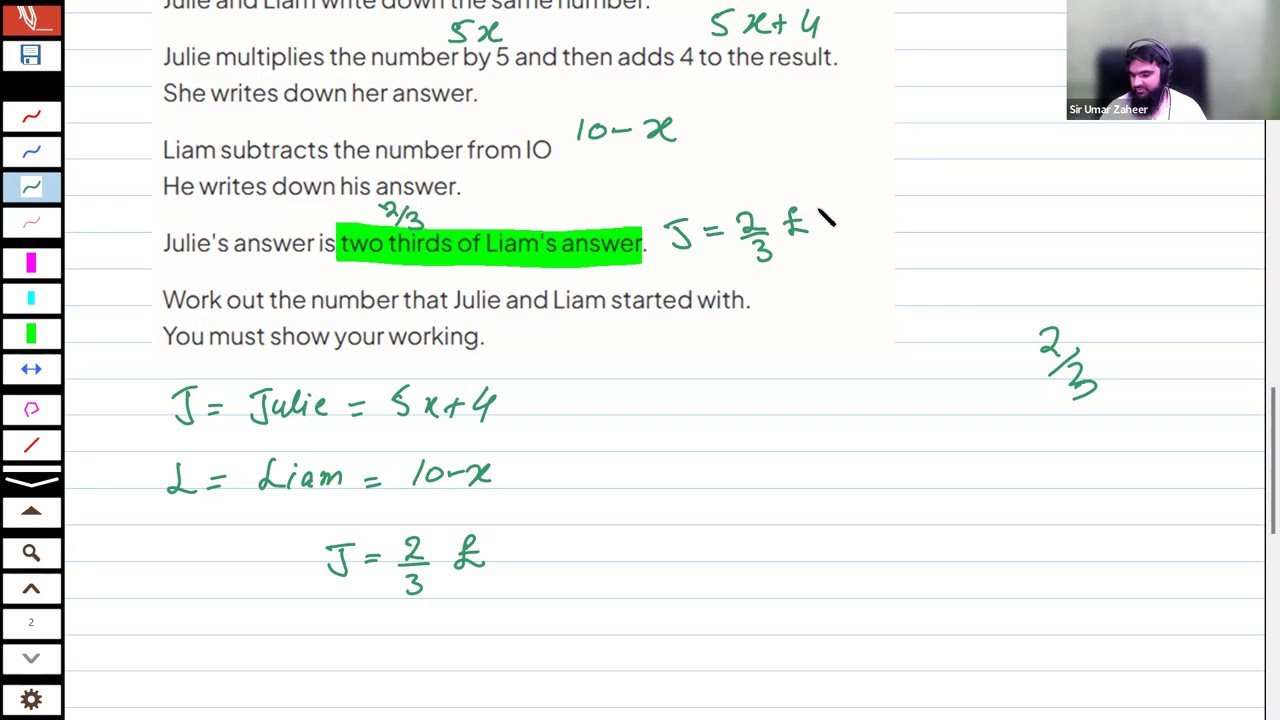 Julie and Liam write down the same number.
5x 5x+4
Julie multiplies the number by 5 and then adds 4 to the result.
She writes down her answer.
10-x
Liam subtracts the number from 10
He writes down his answer.
2/3
Julie's answer is two thirds of Liam's answer. J = 2/3 £
Work out the number that Julie and Liam started with.
You must show your working.
2/3
J = Julie = 5x+4
L = Liam = 10-x
J = 2/3 £
Sir Umar Zaheer
2